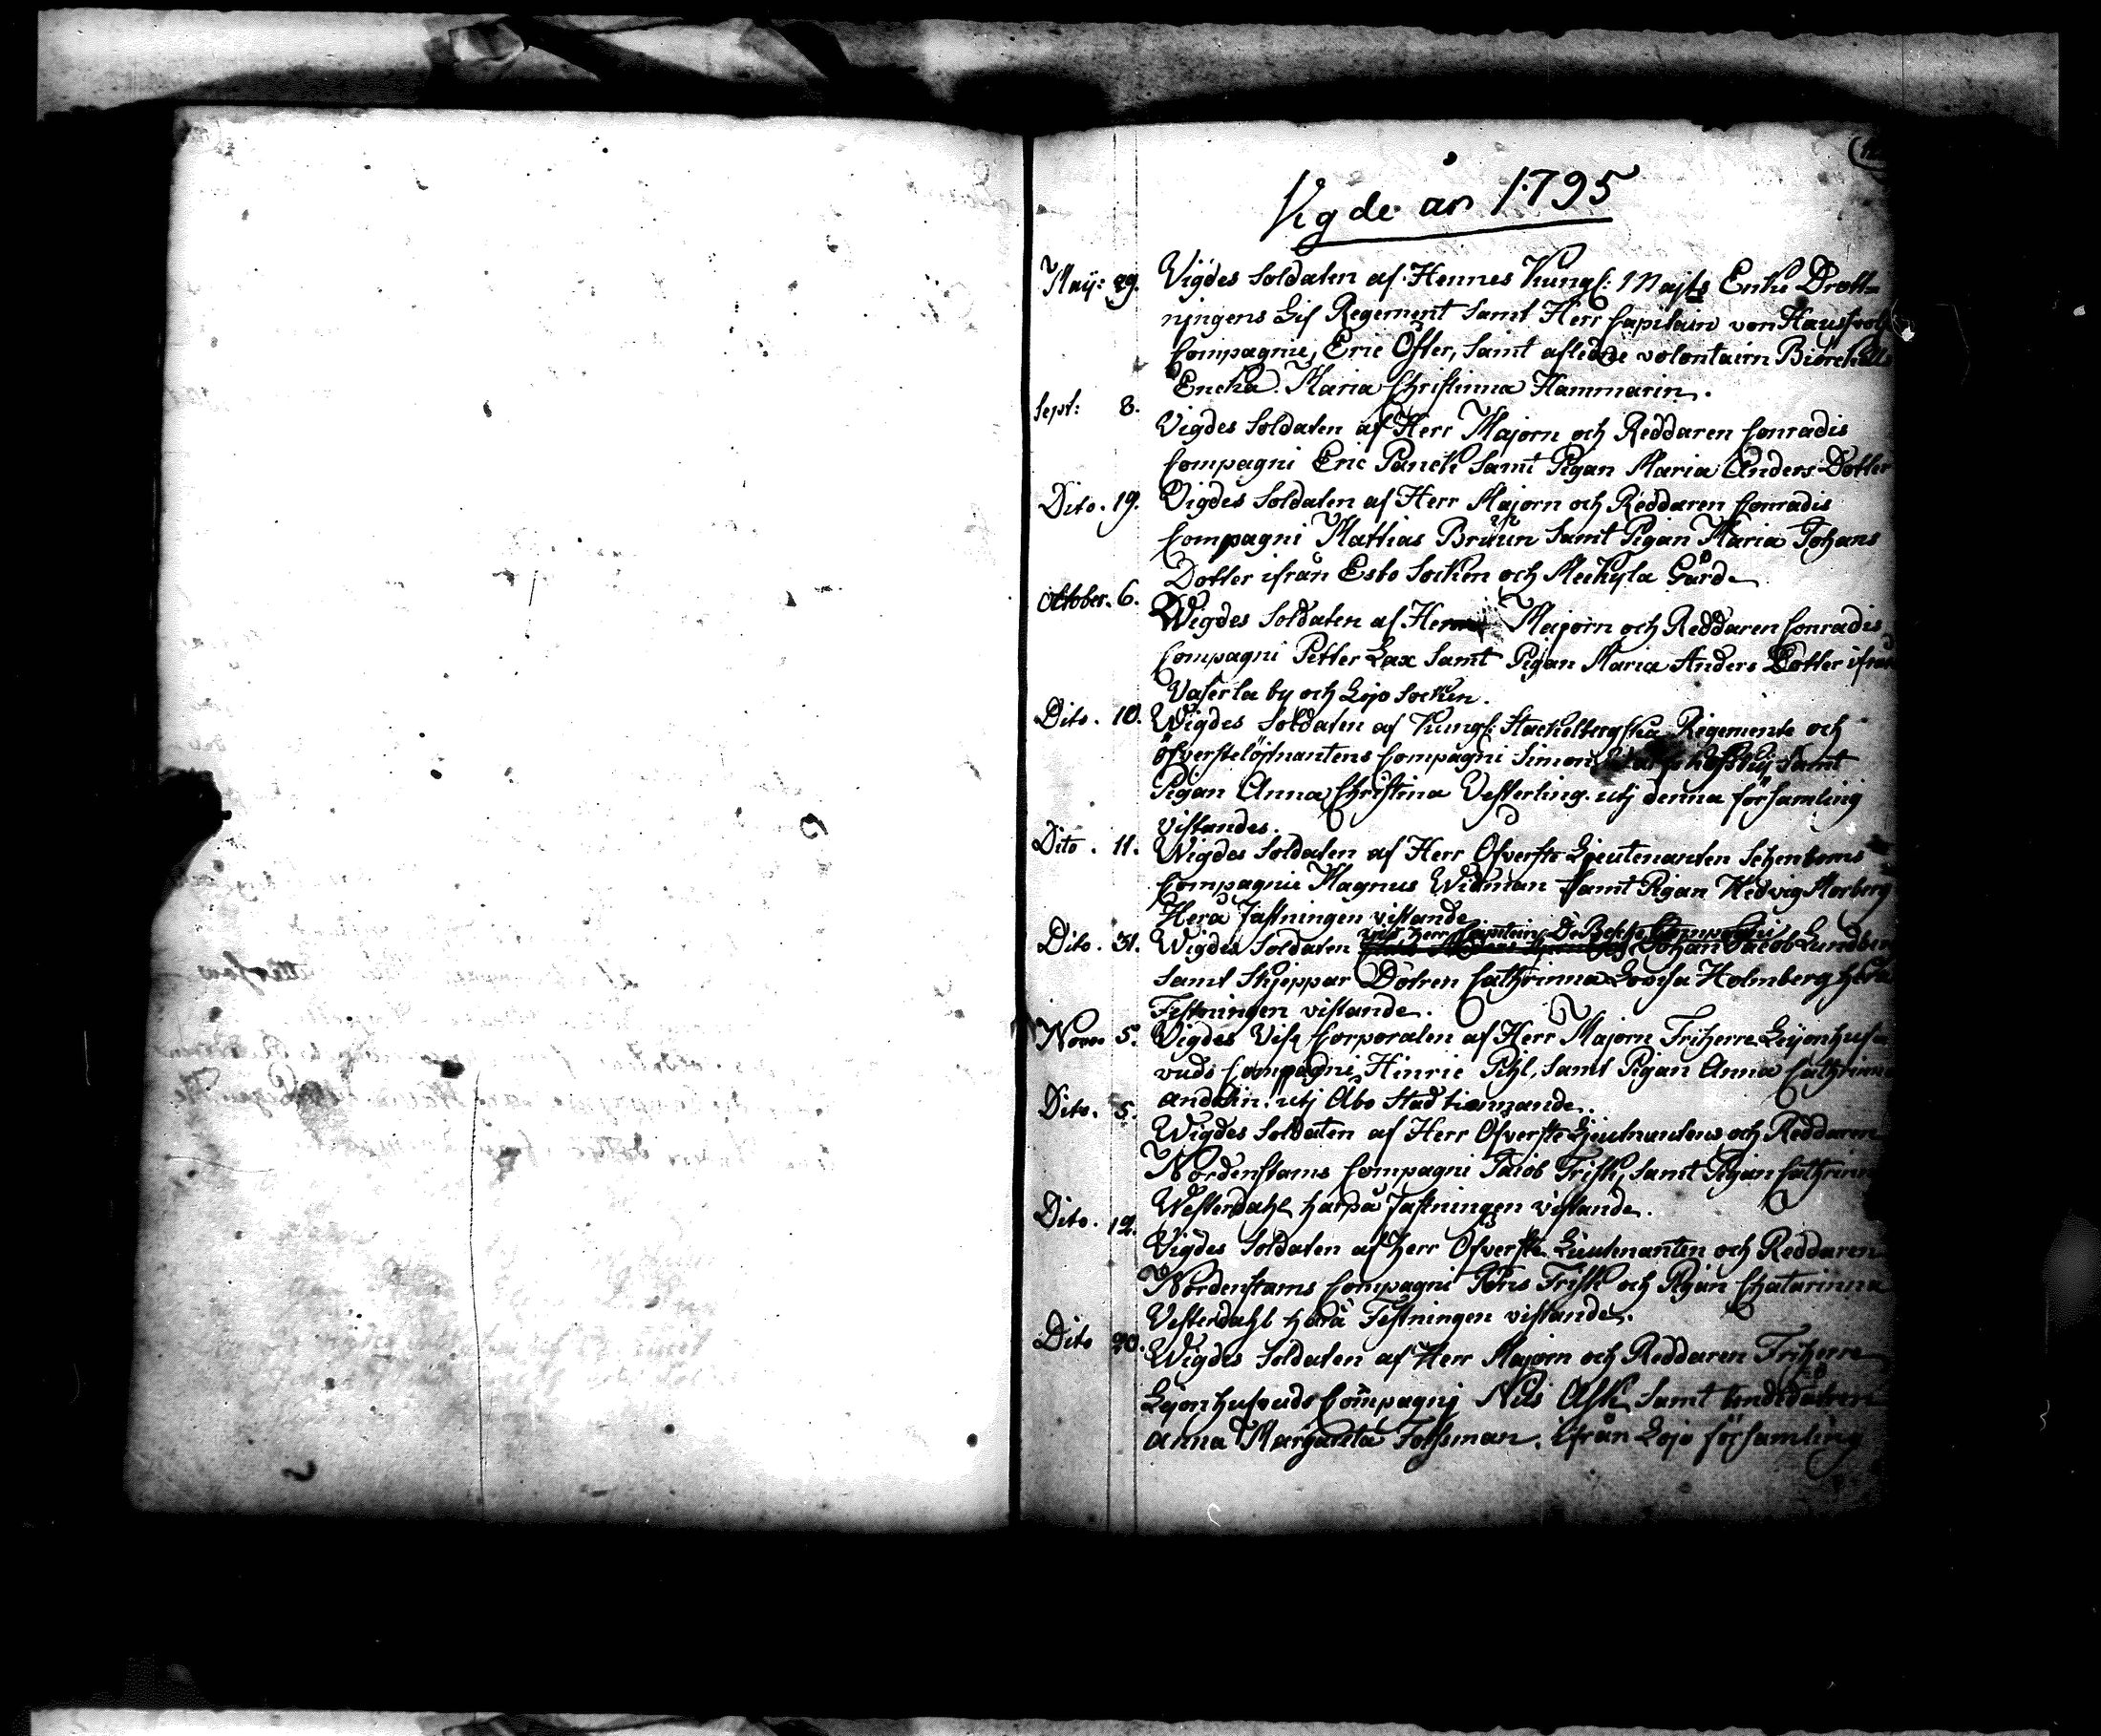 Vigde år 1795
Maÿ: 29. Vigdes Soldaten af Hennes Kungl: Majts Enke Drott-
ningens Lif Regement Samt Herr Capitain von
Compagnie, Eric Öster, Samt afledne volontairn
Encka Maria Christinna Hammarin.
Sept: 8. Vigdes Soldaten af Herr Majorn och Reddaren Conradis
Compagni Eric Panck Samt Pigan Maria Anders Dotter
Dito. 19. Vigdes Soldaten af Herr Majorn och Reddaren Conradis
Compagni Mattias Bruun Samt Pigan Maria Johans
Dotter ifrån Esbo Socken och Meckyla Gård
October. 6. Wigdes Soldaten af Herr Majorn och Reddaren Conradis
Compagni Petter Lax Samt Pigan Maria Anders Dotter ifrån
Vaserla by och Lojo Socken.
Dito. 10. Wigdes Soldaten af Kungl: Stackelbergska Regemente och
öfverstelöjtnantens Compagni Simon Samt
Pigan Anna Christina Vesterling utj denna församling
vistandes.
Dito. 11. Wigdes Soldaten af Herr Öfverste Lieutenanten
Compagnie Magnus Widman Samt Pigan Hedvig Morberg
Hera Fästningen vistande
Dito. 31. Wigdes Soldaten vid Herr Capitein De Compagni Johan Jacob Lundberg
Samt Skjeppar Dotren Cathrinna Lovisa Holmberg hera
Festningen vistande.
Novem 5. Vigdes Vise Corporalen af Herr Majorn Friherre Leÿonhuf-
vuds Compagni Hinric Pihl, Samt Pigan Anna Cathrinna
utj Åbo Stad
Dito. 5. Wigdes Soldaten af Herr Öfverste Lieutnantens och Reddaren
Nordenstams Compagni Jacob Frisk, Samt Pigan Cathrinna
Westerdahl härpå Fästningen vistande.
Dito. 12. Vigdes Soldaten af Herr Öfverste Lieutenanten och Reddaren
Nordenstams Compagni Jöns Frisk och Pigan Chatarinna
Vesterdahl härå Festningen vistande.
Dito 20. Wigdes Soldaten af Herr Majorn och Reddaren Friherre
Leÿonhufvuds Compagnij Nils Ask Samt
Anna Margareta Forsman. ifrån Lojo församling